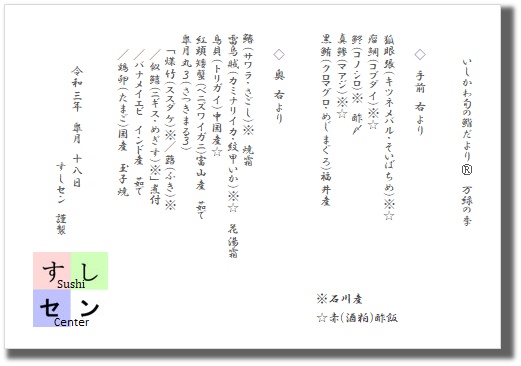 いしかわ旬の鮨だより® 万緑の季
◇ 手前 右より
狐眼張(キツネメバル・そいばちめ)※☆
瘤鯛(コブダイ)※☆
鮗(コノシロ)※ 酢〆
真鯵(マアジ)※☆
黒鮪(クロマグロ・めじまぐろ)福井産
◇ 奥 右より
鰆(サワラ・さごし)※ 焼霜
雷烏賊(カミナリイカ・紋甲いか)※☆ 花湯霜
鳥貝(トリガイ)中国産☆
紅頭矮蟹(ベニズワイガニ)富山産 茹で
皐月丸3(さつきまる3)
「煤竹(ススタケ)※／蕗(ふき)※
／似鱚(ニギス・めぎす)※」煮付
／バナメイエビ インド産 茹で
／鶏卵(たまご)国産 玉子焼
令和三年 皐月 十八日
すしセン 謹製
※石川産
☆赤(酒粕)酢飯
すし
Sushi
セン
Center